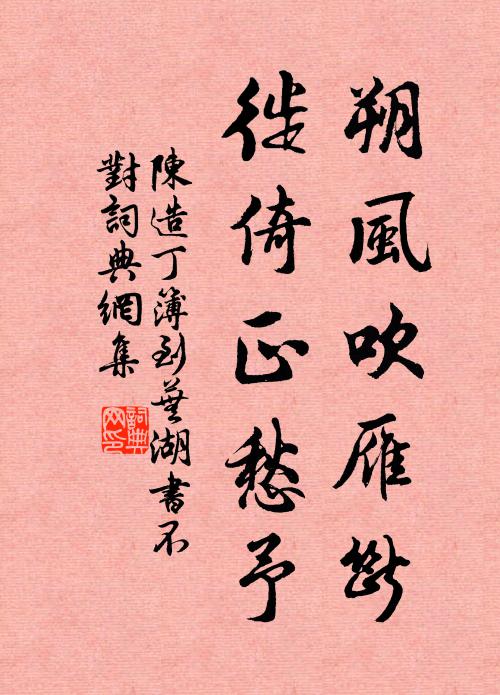 朔風吹雁断
徙倚正愁予
陳造丁簿到蕪湖書不
對詞典網集
詞典网印